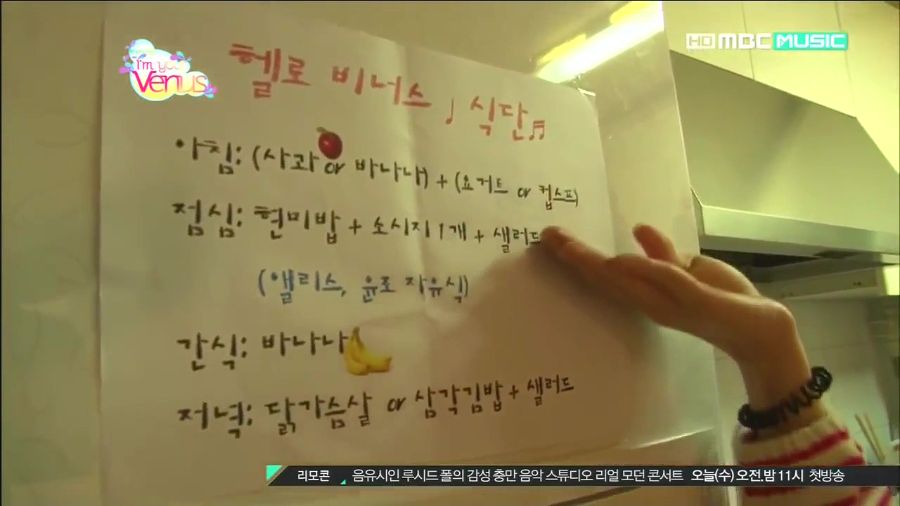 I'm yo Venus
HD MBC MUSIC
헬로 비너스 ♩ 식단♬
아침: (사과 or 바나나) + (요거트 or 컵스프)
점심: 현미밥 + 소시지 1개 + 샐러드
(앨리스, 윤조 자유식)
간식: 바나나
저녁: 닭가슴살 or 삼각김밥 + 샐러드
리모콘 음유시인 루시드 폴의 감성 충만 음악 스튜디오 리얼 모던 콘서트 오늘(수) 오전,밤 11시 첫방송